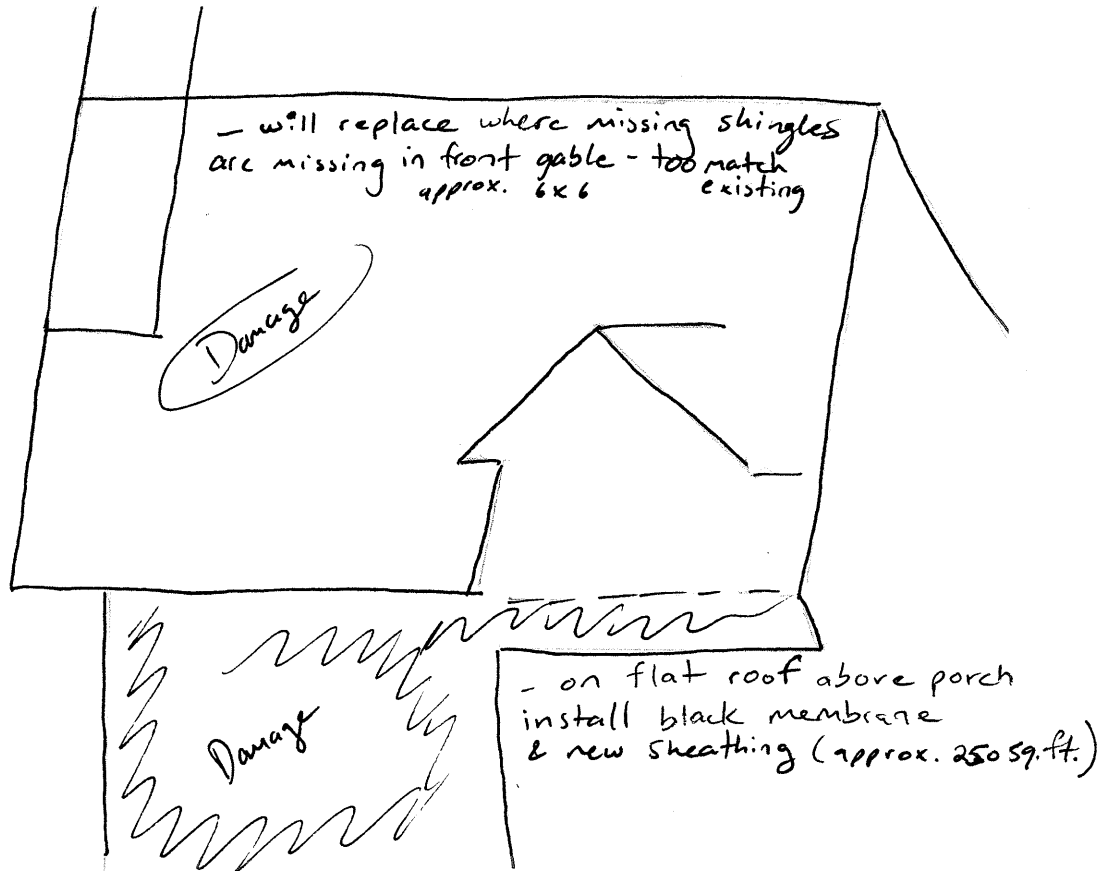 - will replace where missing shingles
are missing in front gable - too match
approx. 6x6 existing
Damage
Damage
- on flat roof above porch
install black membrane
& new sheathing (approx. 250 sq. ft.)